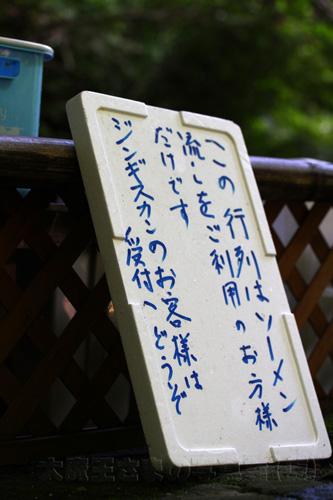 へこの行列はソーメン
流しをご利用のお方様
だけです
ジンギスカンのお客様は
受付へどうぞ